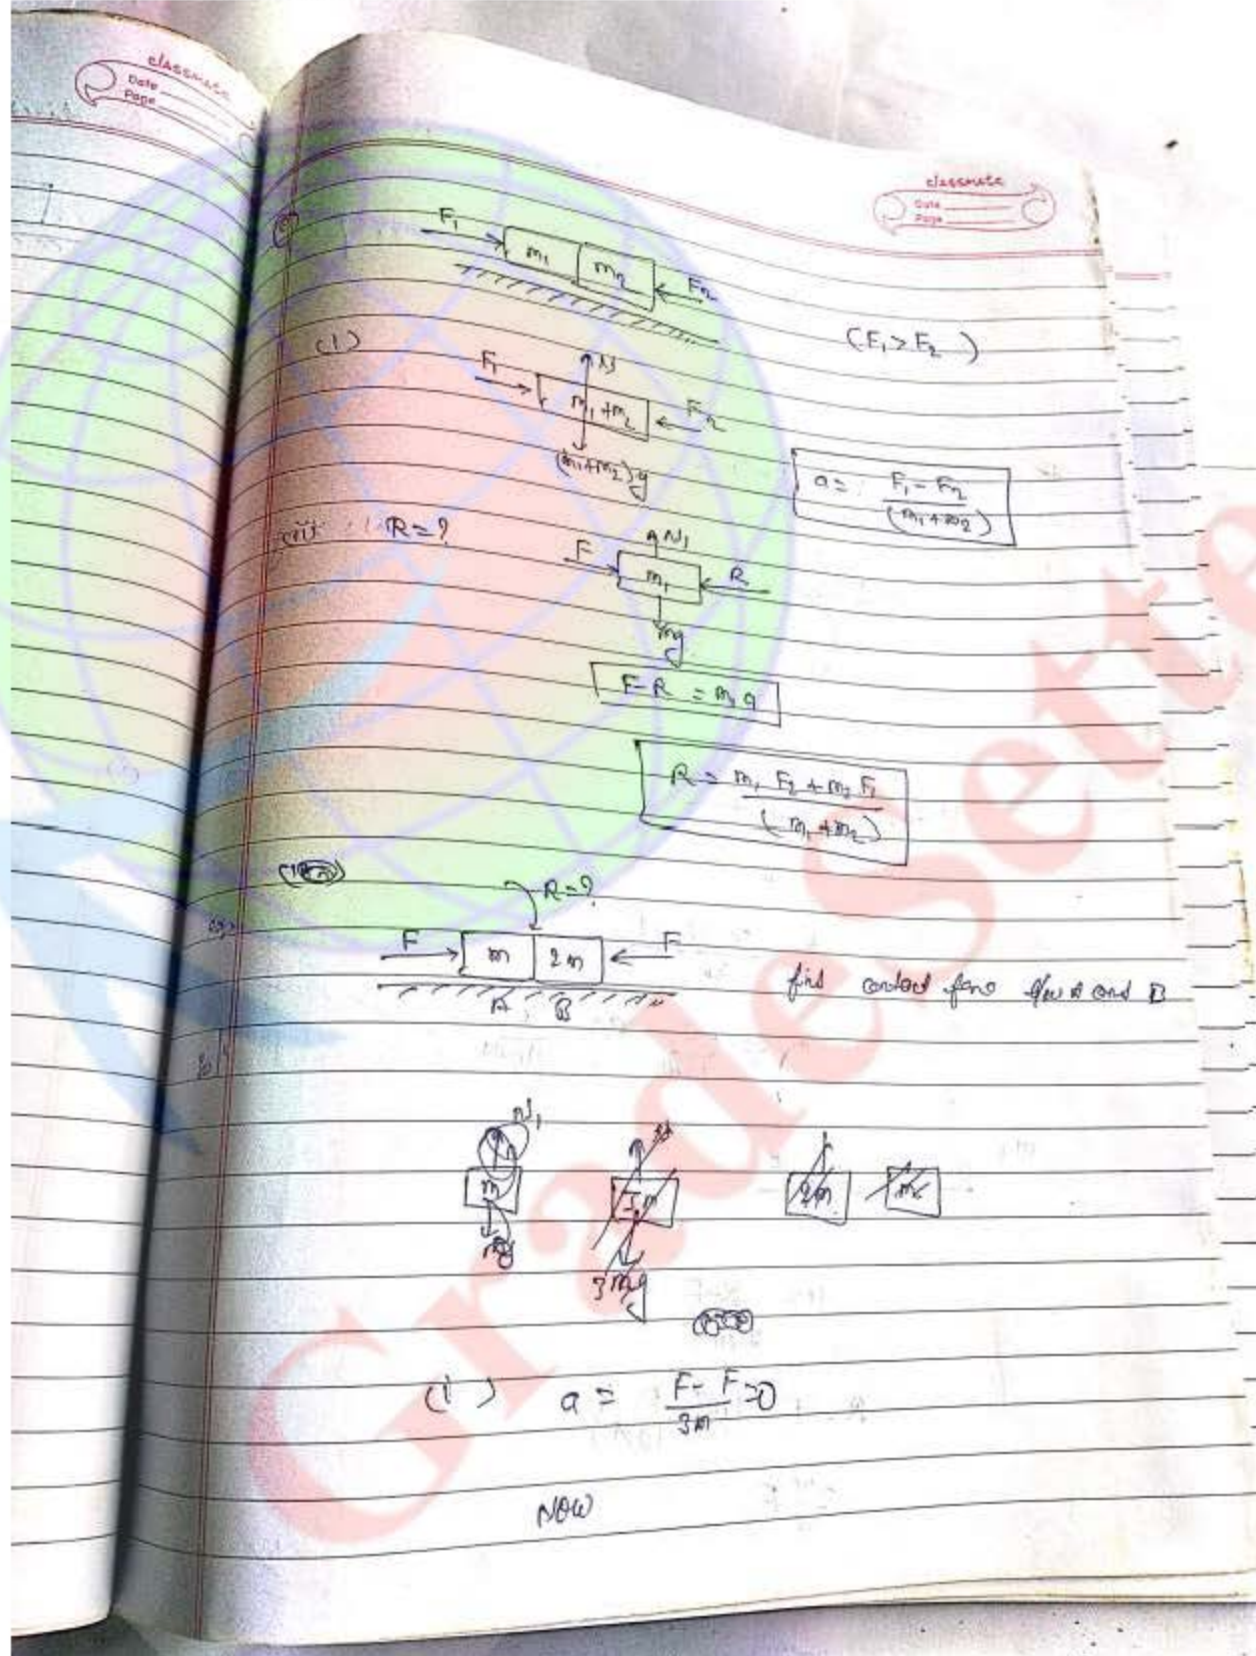 classmate
Date
Page
classmate
Date
Page
F₁
m₁
m₂
F₂
(F₁ > F₂)
(1)
N
F₁
m₁+m₂
F₂
(m₁+m₂)g
a = F₁ - F₂ / (m₁+m₂)
R=?
N₁
F
m₁
R
mg
F-R = m₁a
R = m₁ F₂ + m₂ F₁ / (m₁ + m₂)
R=?
F
m
2m
F
A B
find contact
and B
N₁
m
2m
3mg
(i) a = F - F / 3m = 0
NOW
GradeSette